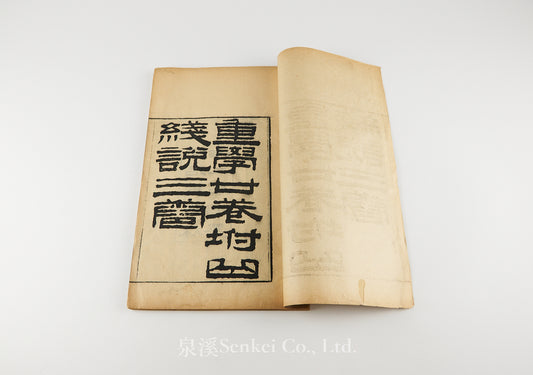 重學廿卷坿曲
綫說三篇
泉溪Senkei Co., Ltd.